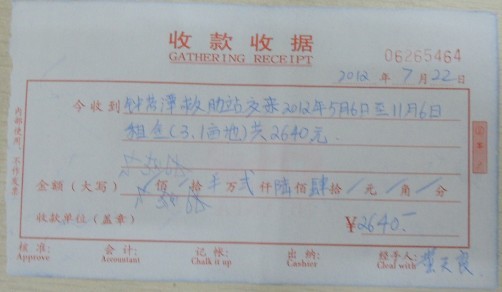 收款收据
GATHERING RECEIPT
06265464
2012年7月22日
今收到 救助站交来2012年5月6日至11月6日
租金(3.1亩地)共2640元.
金额(大写) 佰 拾 万弍仟陆佰肆拾/元/角/分
收款单位(盖章) ¥2640.-
核准: 会计: 记帐: 出纳: 经手人:
Approve Accountant Chalk it up Cashier Cleal with
内部使用,不作发票